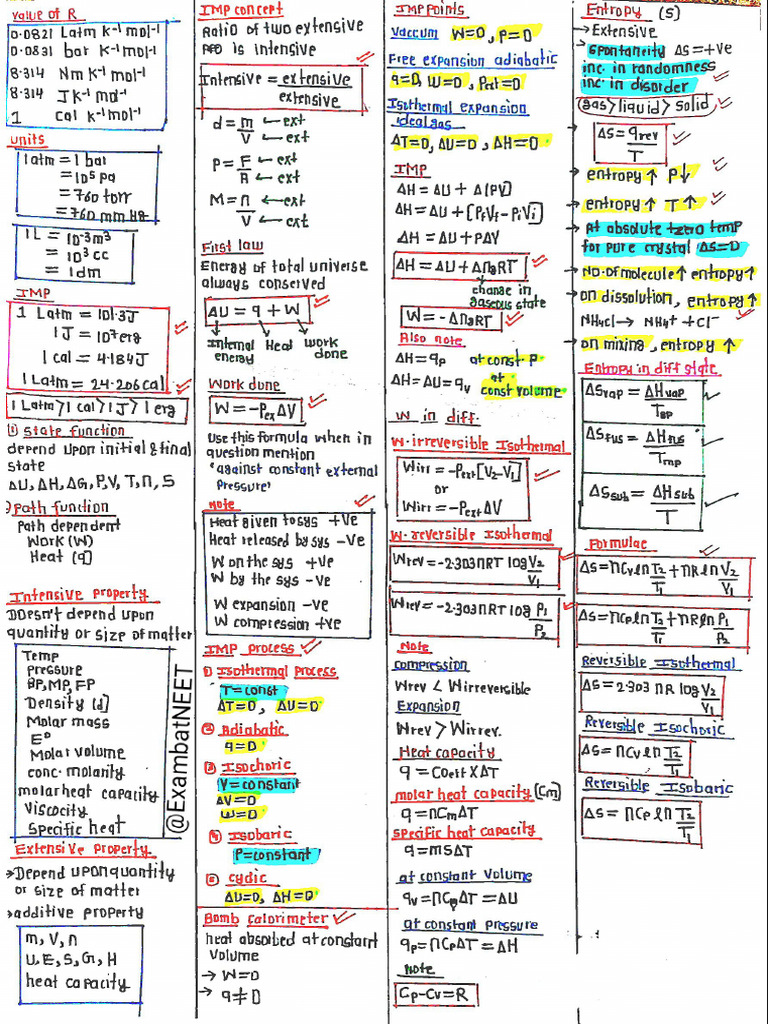 value of R
0.0821 Latm K⁻¹ mol⁻¹
0.0831 bar K⁻¹ mol⁻¹
8.314 Nm K⁻¹ mol⁻¹
8.314 J K⁻¹ mol⁻¹
1 cal K⁻¹ mol⁻¹
units
1 atm = 1 bar
= 10⁵ pa
= 760 torr
= 760 mm Hg
1L = 10⁻³m³
= 10³ cc
= 1dm
IMP
1 Latm = 101.3J
1J = 10⁷erg
1 cal = 4.184J
1 Latm = 24.206cal
1 Latm > 1 cal > 1 J > 1 erg
① State function
depend upon initial & final
state
ΔU, ΔH, ΔG, P,V, T, n, S
Path function
Path dependent
Work (W)
Heat (q)
Intensive property
Doesn't depend upon
quantity or size of matter
Temp
Pressure
BP, MP, FP
Density (d)
Molar mass
E°
Molar volume
conc. molarity
molar heat capacity
Viscocity
Specific heat
@ExambatNEET
Extensive Property
→ Depend upon quantity
or size of matter
→ additive property
m, V, n
U, E, S, G, H
heat capacity
IMP concept
Ratio of two extensive
PPD is intensive
Intensive = extensive/extensive
d = m/V ← ext ← ext
P = F/A ← ext ← ext
M = n/V ← ext ← ext
First law
Energy of total universe
always conserved
ΔU = q + W
Internal energy Heat work done
Work done
W = -Pex ΔV
Use this formula when in
question mention
'against constant external
Pressure'
Note
Heat given to sys +ve
Heat released by sys -ve
W on the sys +ve
W by the sys -ve
W expansion -ve
W compression +ve
IMP process
① Isothermal process
T = const
ΔT=0, ΔU=0
② Adiabatic
q=0
③ Isochoric
V = constant
ΔV=0
W=0
④ Isobaric
P=constant
⑤ Cyclic
ΔU=0, ΔH=0
Bomb calorimeter
heat absorbed at constant
Volume
→ W=0
→ q≠0
IMP Points
Vaccum W=0, P=0
Free expansion adiabatic
q=0, W=0, Pext=0
Isothermal expansion
ideal gas
ΔT=0, ΔU=0, ΔH=0
IMP
ΔH = ΔU + Δ(PV)
ΔH = ΔU + [PfVf - PiVi]
ΔH = ΔU + PΔV
ΔH = ΔU + ΔngRT
change in
gaseous state
W = -ΔngRT
Also note
ΔH = qp at const P
ΔH = ΔU = qv at const volume
W in diff.
W. irreversible Isothermal
Wirr = -Pext[V₂-V₁]
or
Wirr = -PextΔV
W. reversible Isothermal
Wrev = -2.303nRT log V₂/V₁
Wrev = -2.303nRT log P₁/P₂
Note
compression
Wrev < Wirreversible
Expansion
Wrev > Wirrev.
Heat capacity
q = Coeff X ΔT
molar heat capacity (Cm)
q = nCmΔT
specific heat capacity
q = msΔT
at constant Volume
qv = nCvΔT = ΔU
at constant pressure
qp = nCpΔT = ΔH
Note
Cp-Cv = R
Entropy (S)
→ Extensive
spontaneity ΔS = +ve
inc. in randomness
inc in disorder
gas > liquid > solid
ΔS = qrev/T
entropy ↑ P↓
entropy ↑ T↑
→ At absolute tzero temp
for pure crystal ΔS=0
→ No. of molecule ↑ entropy ↑
→ on dissolution, entropy ↑
NH4Cl → NH4⁺ + Cl⁻
→ on mixing, entropy ↑
Entropy in diff state
ΔSvap = ΔHvap/TBP
ΔSfus = ΔHfus/Tmp
ΔSsub = ΔHsub/T
Formulae
ΔS = nCv ln T₂/T₁ + nR ln V₂/V₁
ΔS = nCp ln T₂/T₁ + nR ln P₁/P₂
Reversible Isothermal
ΔS = 2.303 nR log V₂/V₁
Reversible Isochoric
ΔS = nCv ln T₂/T₁
Reversible Isobaric
ΔS = nCp ln T₂/T₁